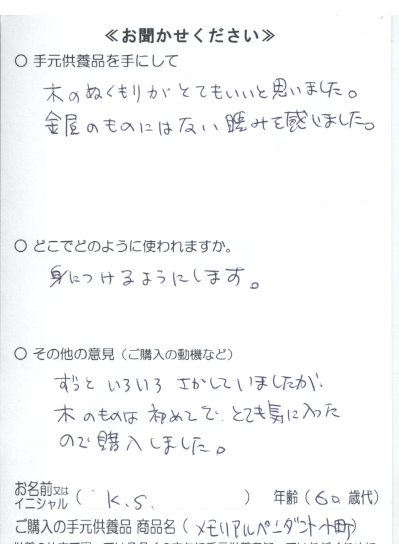 ≪お聞かせください≫
○ 手元供養品を手にして
木のぬくもりがとてもいいと思いました。
金属のものにはない暖みを感じました。
○ どこでどのように使われますか。
身につけるようにします。
○ その他の意見（ご購入の動機など）
ずっといろいろさがしていましたが、
木のものは初めてで、とても気に入った
ので購入しました。
お名前又は
イニシャル（ K.S. ） 年齢（60歳代）
ご購入の手元供養品 商品名（メモリアルペンダント小町）